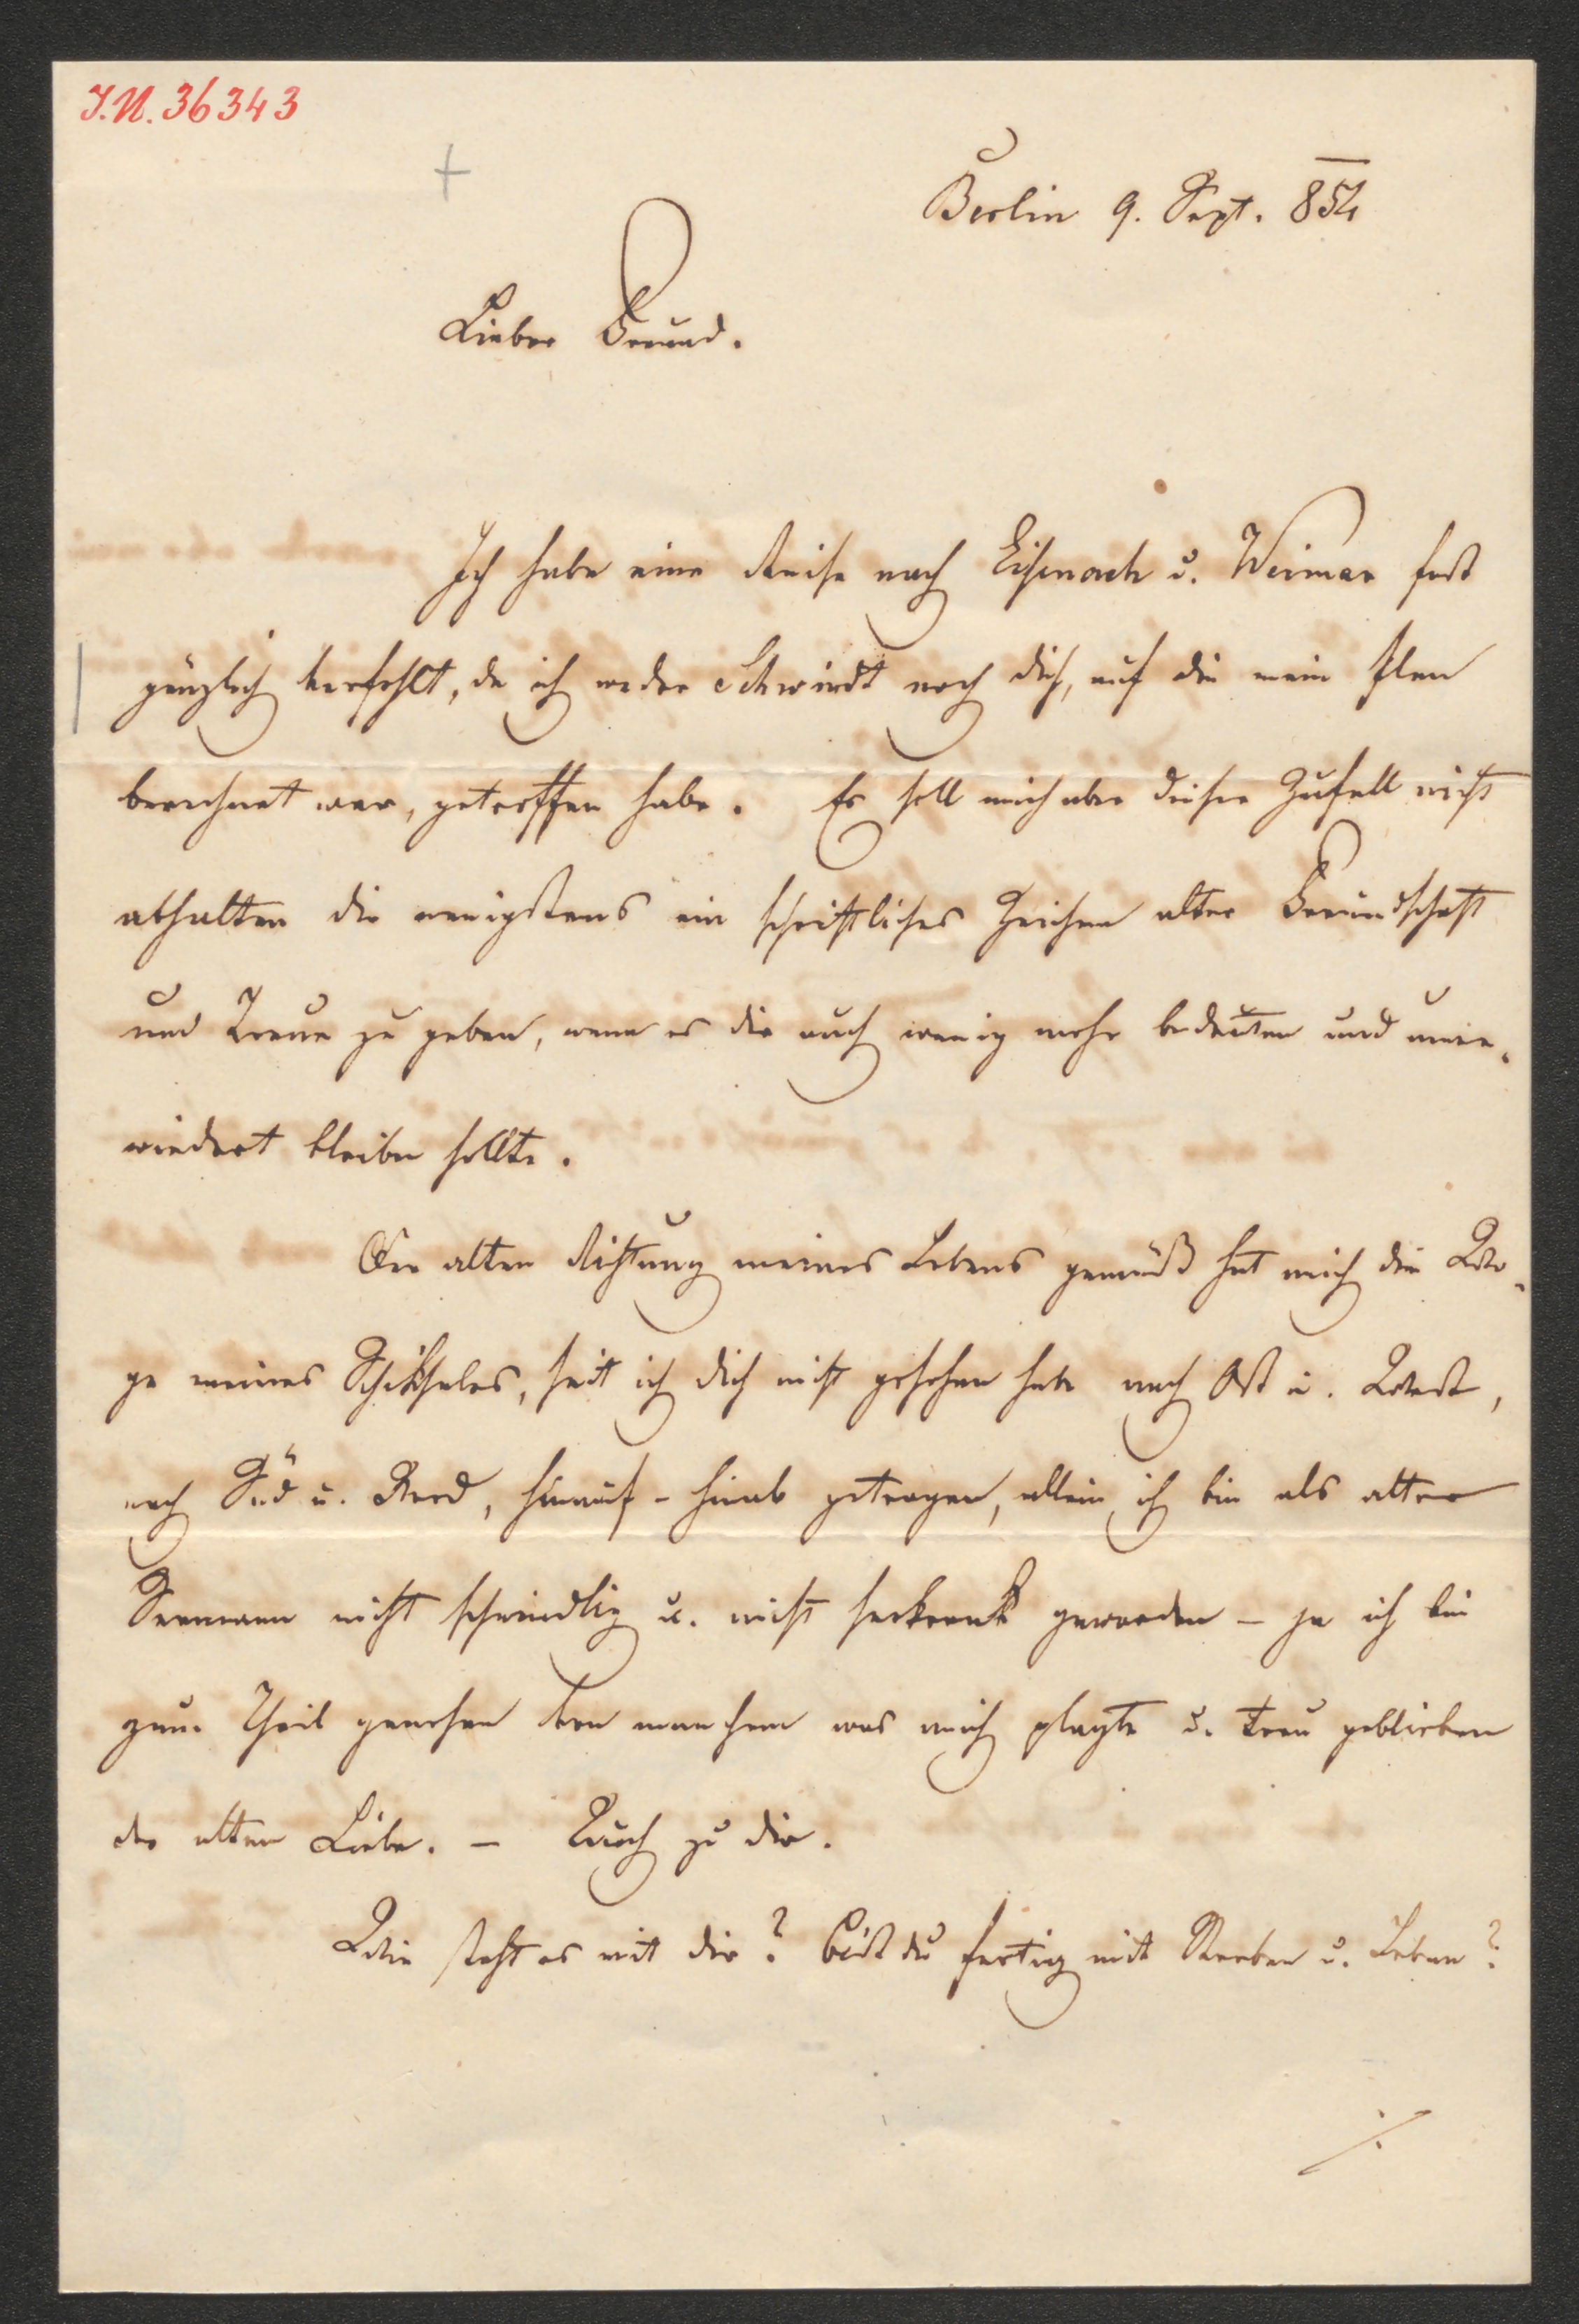 I.N. 36343
Berlin 9. Sept. 854
Lieber Freund.
Ich habe eine Reise nach Eisenach u. Weimar fast
gänzlich verfehlt, da ich weder Schwindt noch dich, auf die mein Plan
berechnet war, getroffen habe. Es soll mich aber dieser Zufall nicht
abhalten dir wenigstens ein schriftliches Zeichen alter Freundschaft
und Treue zu geben, wenn es dir auch wenig mehr bedeuten und uner-
wiedert bleiben sollte.
Der alten Richtung meines Lebens gemäß hat mich die Wo-
ge meines Schiksales, seit ich dich nicht gesehen habe nach Ost u. West,
nach Süd u. Nord, hinauf - hinab getragen, allein ich bin als alter
Seemann nicht schwindlig u. nicht seekrank geworden – ja ich bin
zum Theil genesen von manchem was mich plagte u. treu geblieben
der alten Liebe. – Auch zu dir.
Wie steht es mit dir? bist du fertig mit Streben u. Leben?
./.